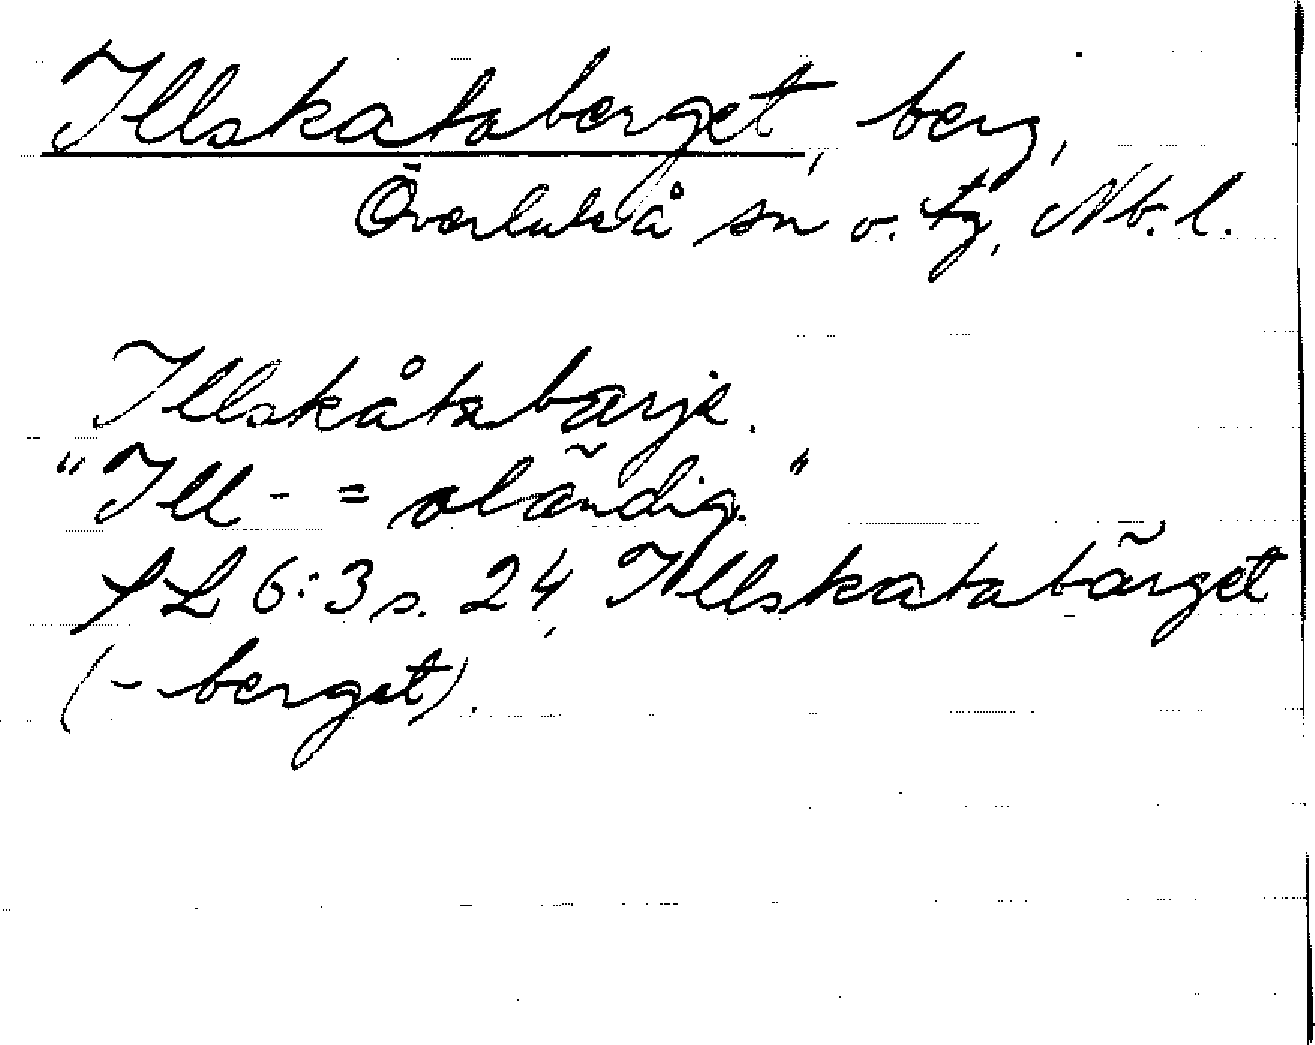 Illskataberget, berg,
Överluleå sn o. tg, Nb. l.
Illskåtabärje.
"Ill- = oländig."
SL 6:3 s. 24, Illskatabärget
(-berget).